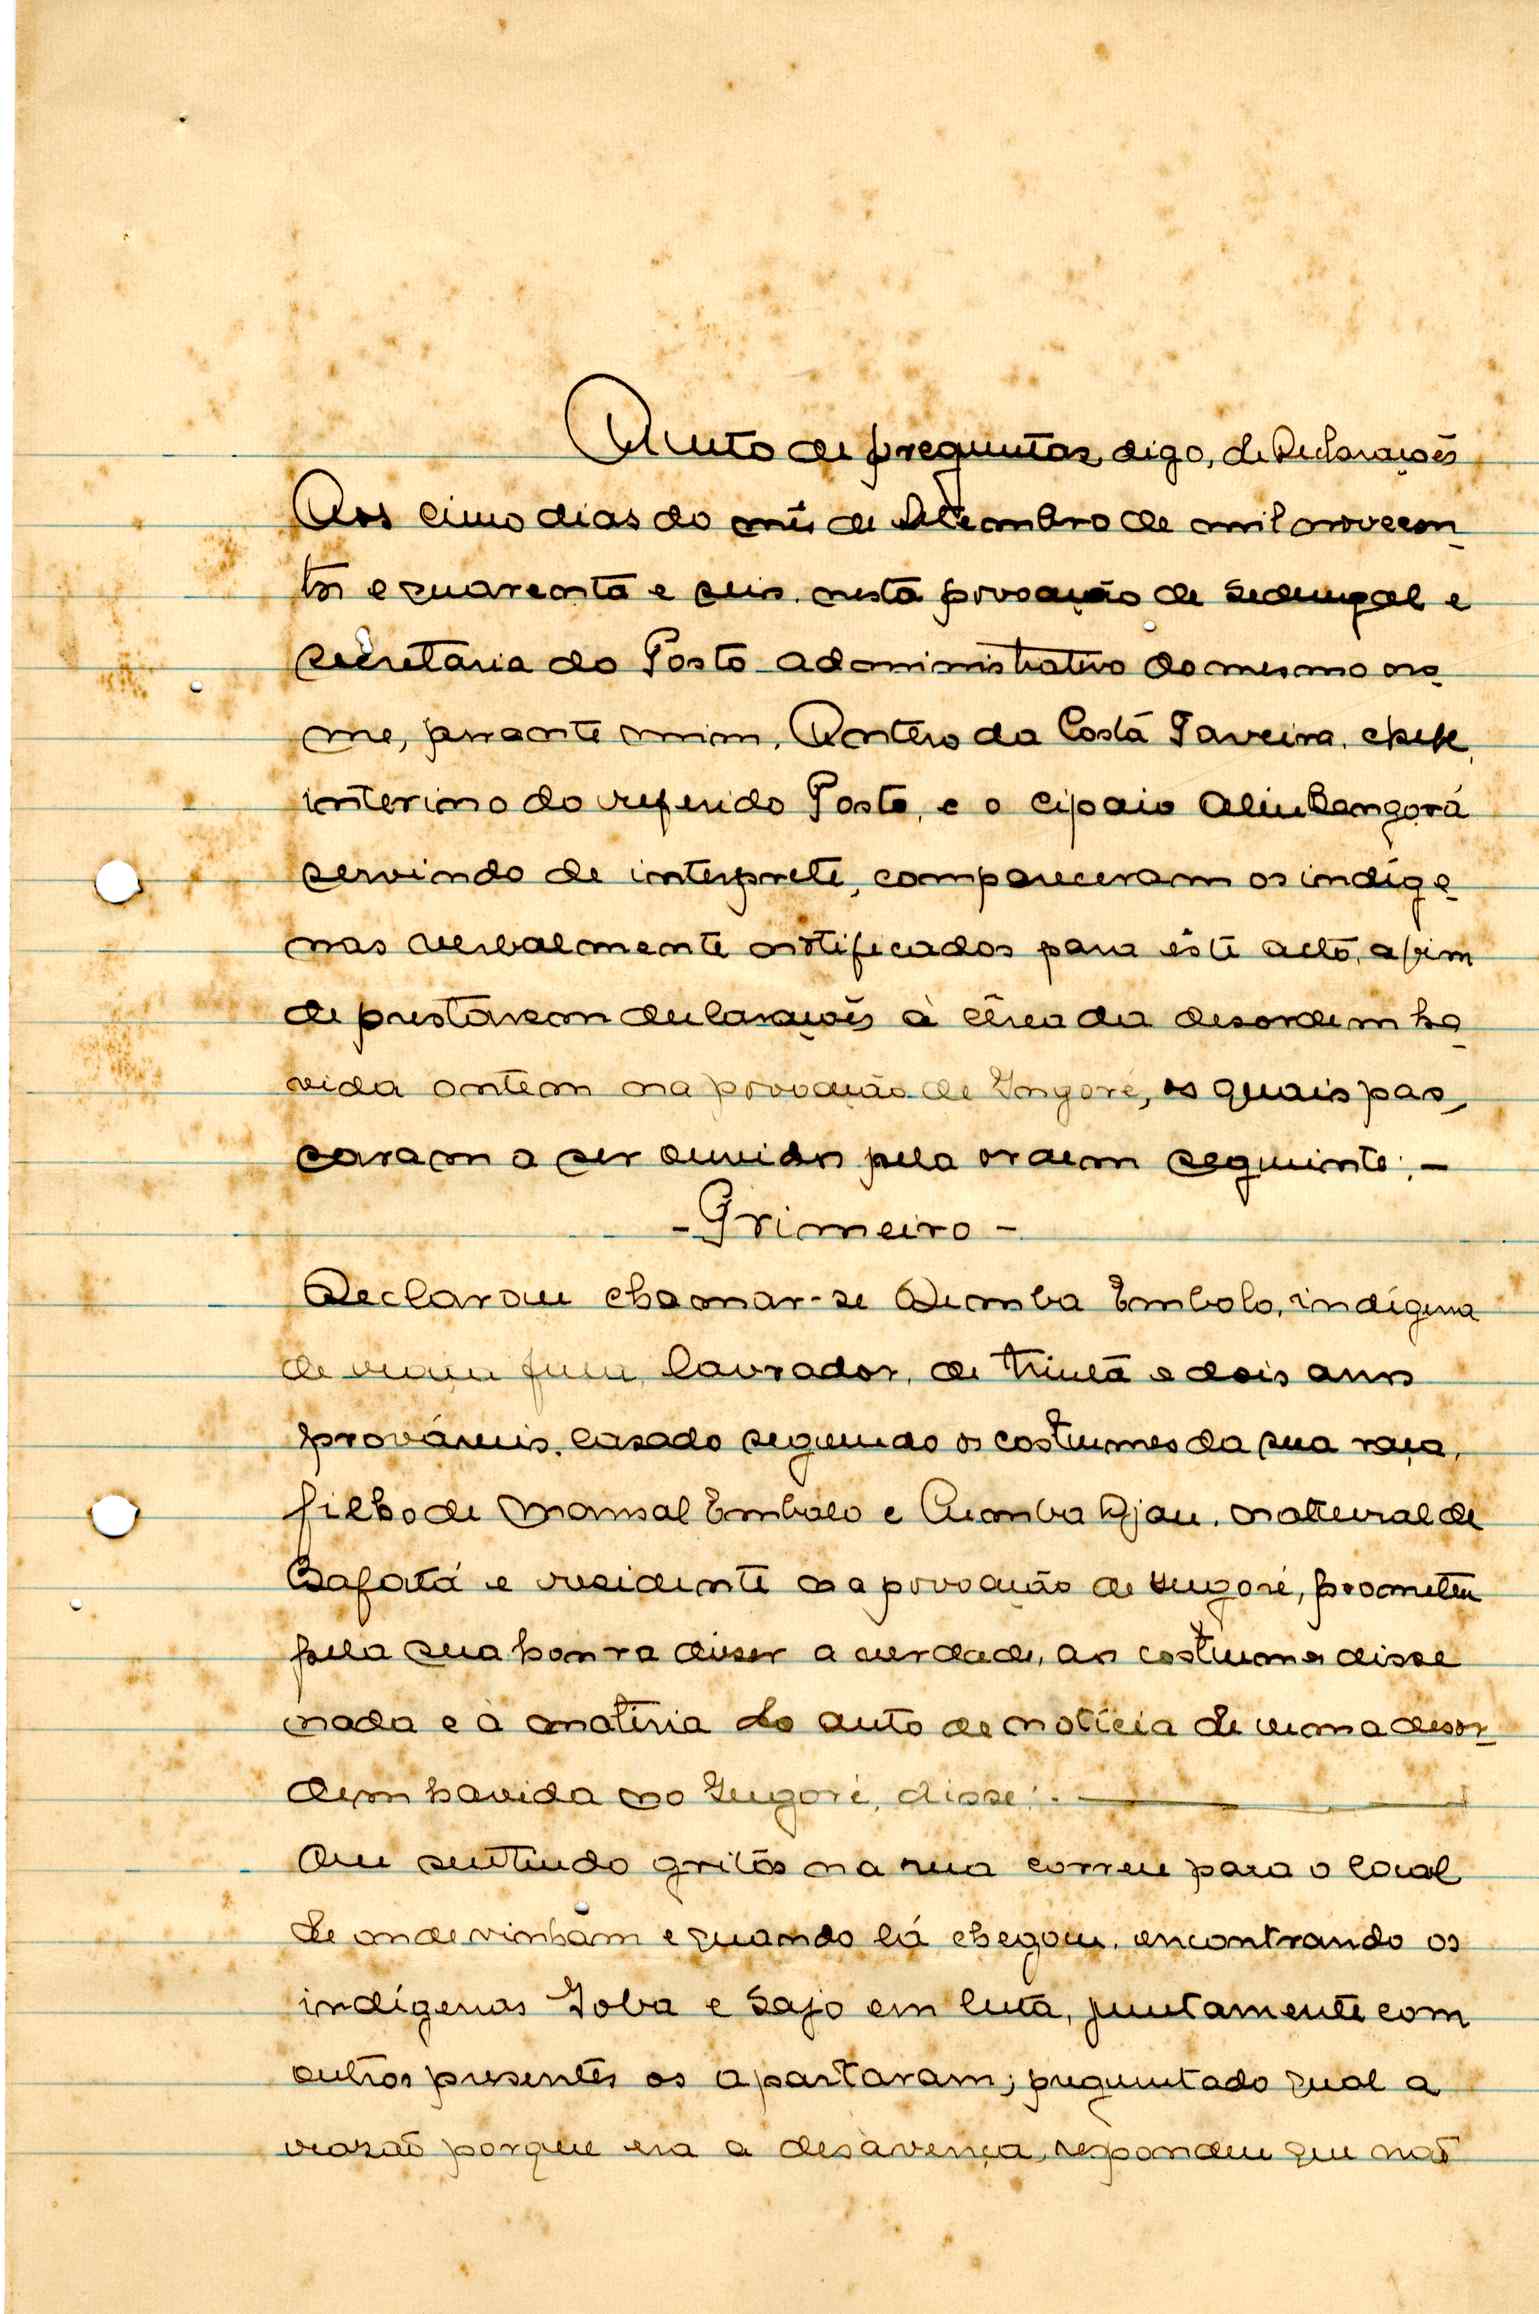 Auto de preguntas, digo, de Declarações
Aos cinco dias do mês de Setembro de mil novecen-
tos e quarenta e seis, nesta povoação de Sedengal e
secretaria do Posto administrativo do mesmo no-
me, perante mim, Antero da Costa Taveira, chefe,
interino do referido Posto, e o cipaio Aliu Bangorá
servindo de interprete, compareceram os indíge-
nas verbalmente notificados para êste acto, afim
de prestarem declarações à cêrca da desordem ha-
vida ontem na povoação de Ingoré, os quais pas-
saram a ser ouvidos pela ordem seguinte: -
- Primeiro -
Declarou chamar-se Demba Embalo, indígena
de raça fula, lavrador, de trinta e dois anos
prováveis, casado segundo os costumes da sua raça,
filho de Mamsal Embalo e Cumba Djau, natural de
Bafatá e residente na povoação de Ingoré, prometeu
pela sua honra diser a verdade, aos costumes disse
nada e à matéria do auto de notícia de uma desor-
dem havida no Ingoré, disse: -
Que sentindo gritos na rua correu para o local
de onde vinham e quando lá chegou, encontrando os
indígenas Ioba e Sajo em luta, juntamente com
outros presentes os apartaram; preguntado qual a
razão porque era a desàvença, respondeu que não